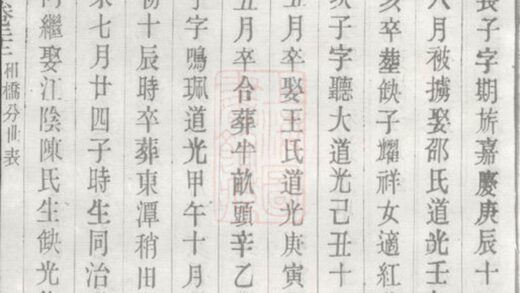 長子字期旂嘉慶庚辰十
八月被擄娶邵氏道光壬
亥卒塟缺子耀祥女適紅
亥子字聽大道光己丑十
五月卒娶王氏道光庚寅
五月卒合葬牛畝頭辛乙
子字鳴珮道光甲午十月
初十辰時卒葬東潭稍田
未七月廿四子時生同治
繼娶江陰陳氏生缺光
卷三十二 和橋分世表